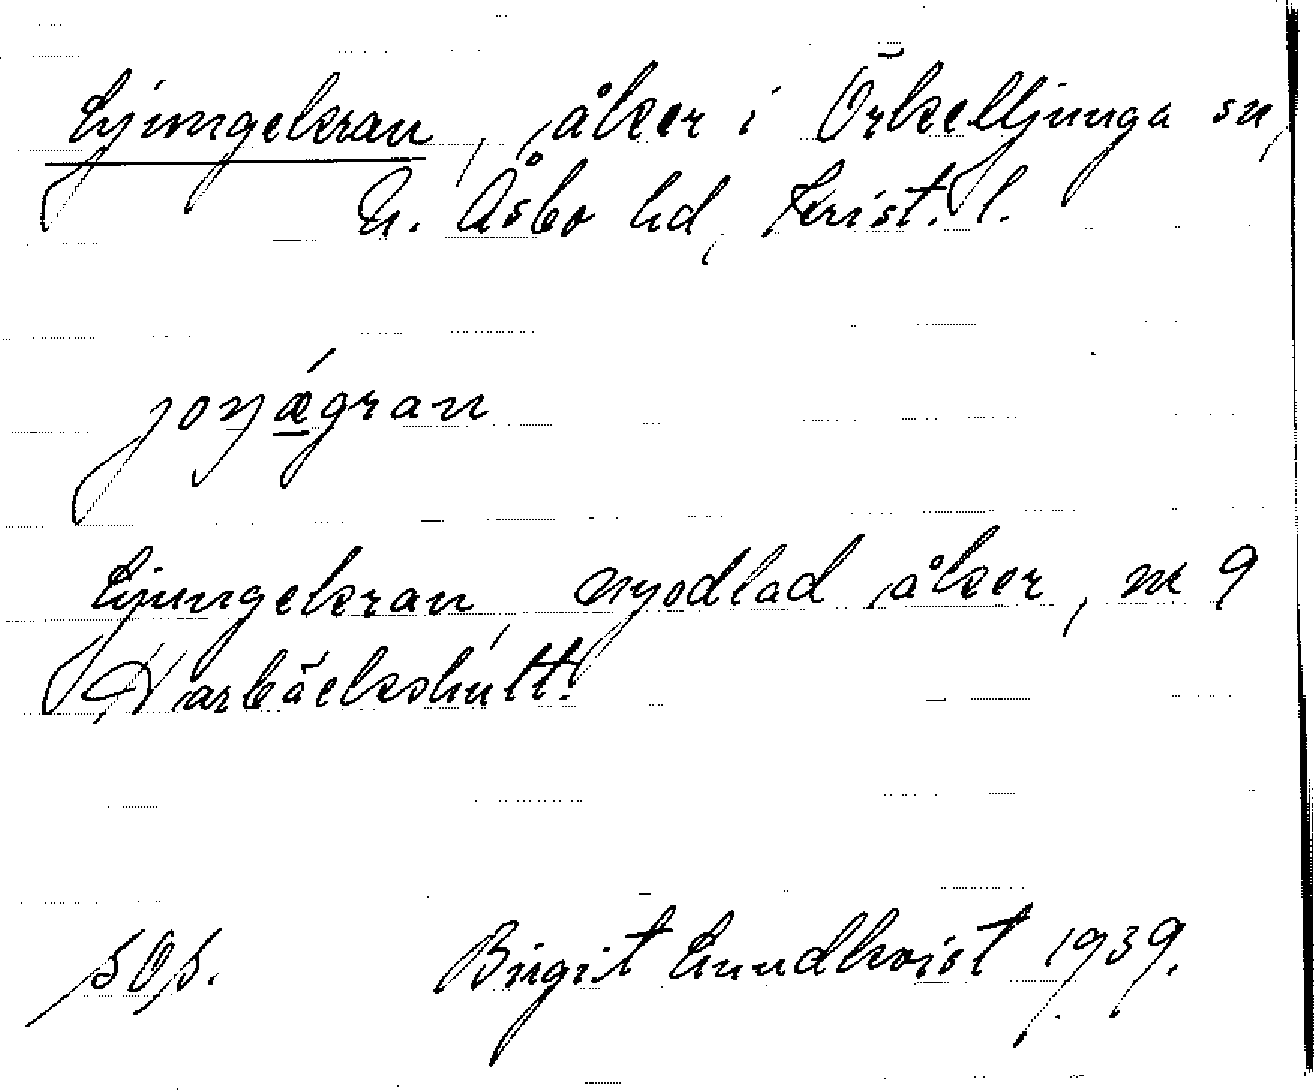 Ljungekran, åker i Örkelljunga sn,
N. Åsbo hd, Krist. l.
joŋǽgran
Ljungekran, nyodlad åker, nr 9
Harbäckshult.
sOs. Birgit Lundkvist 1939.